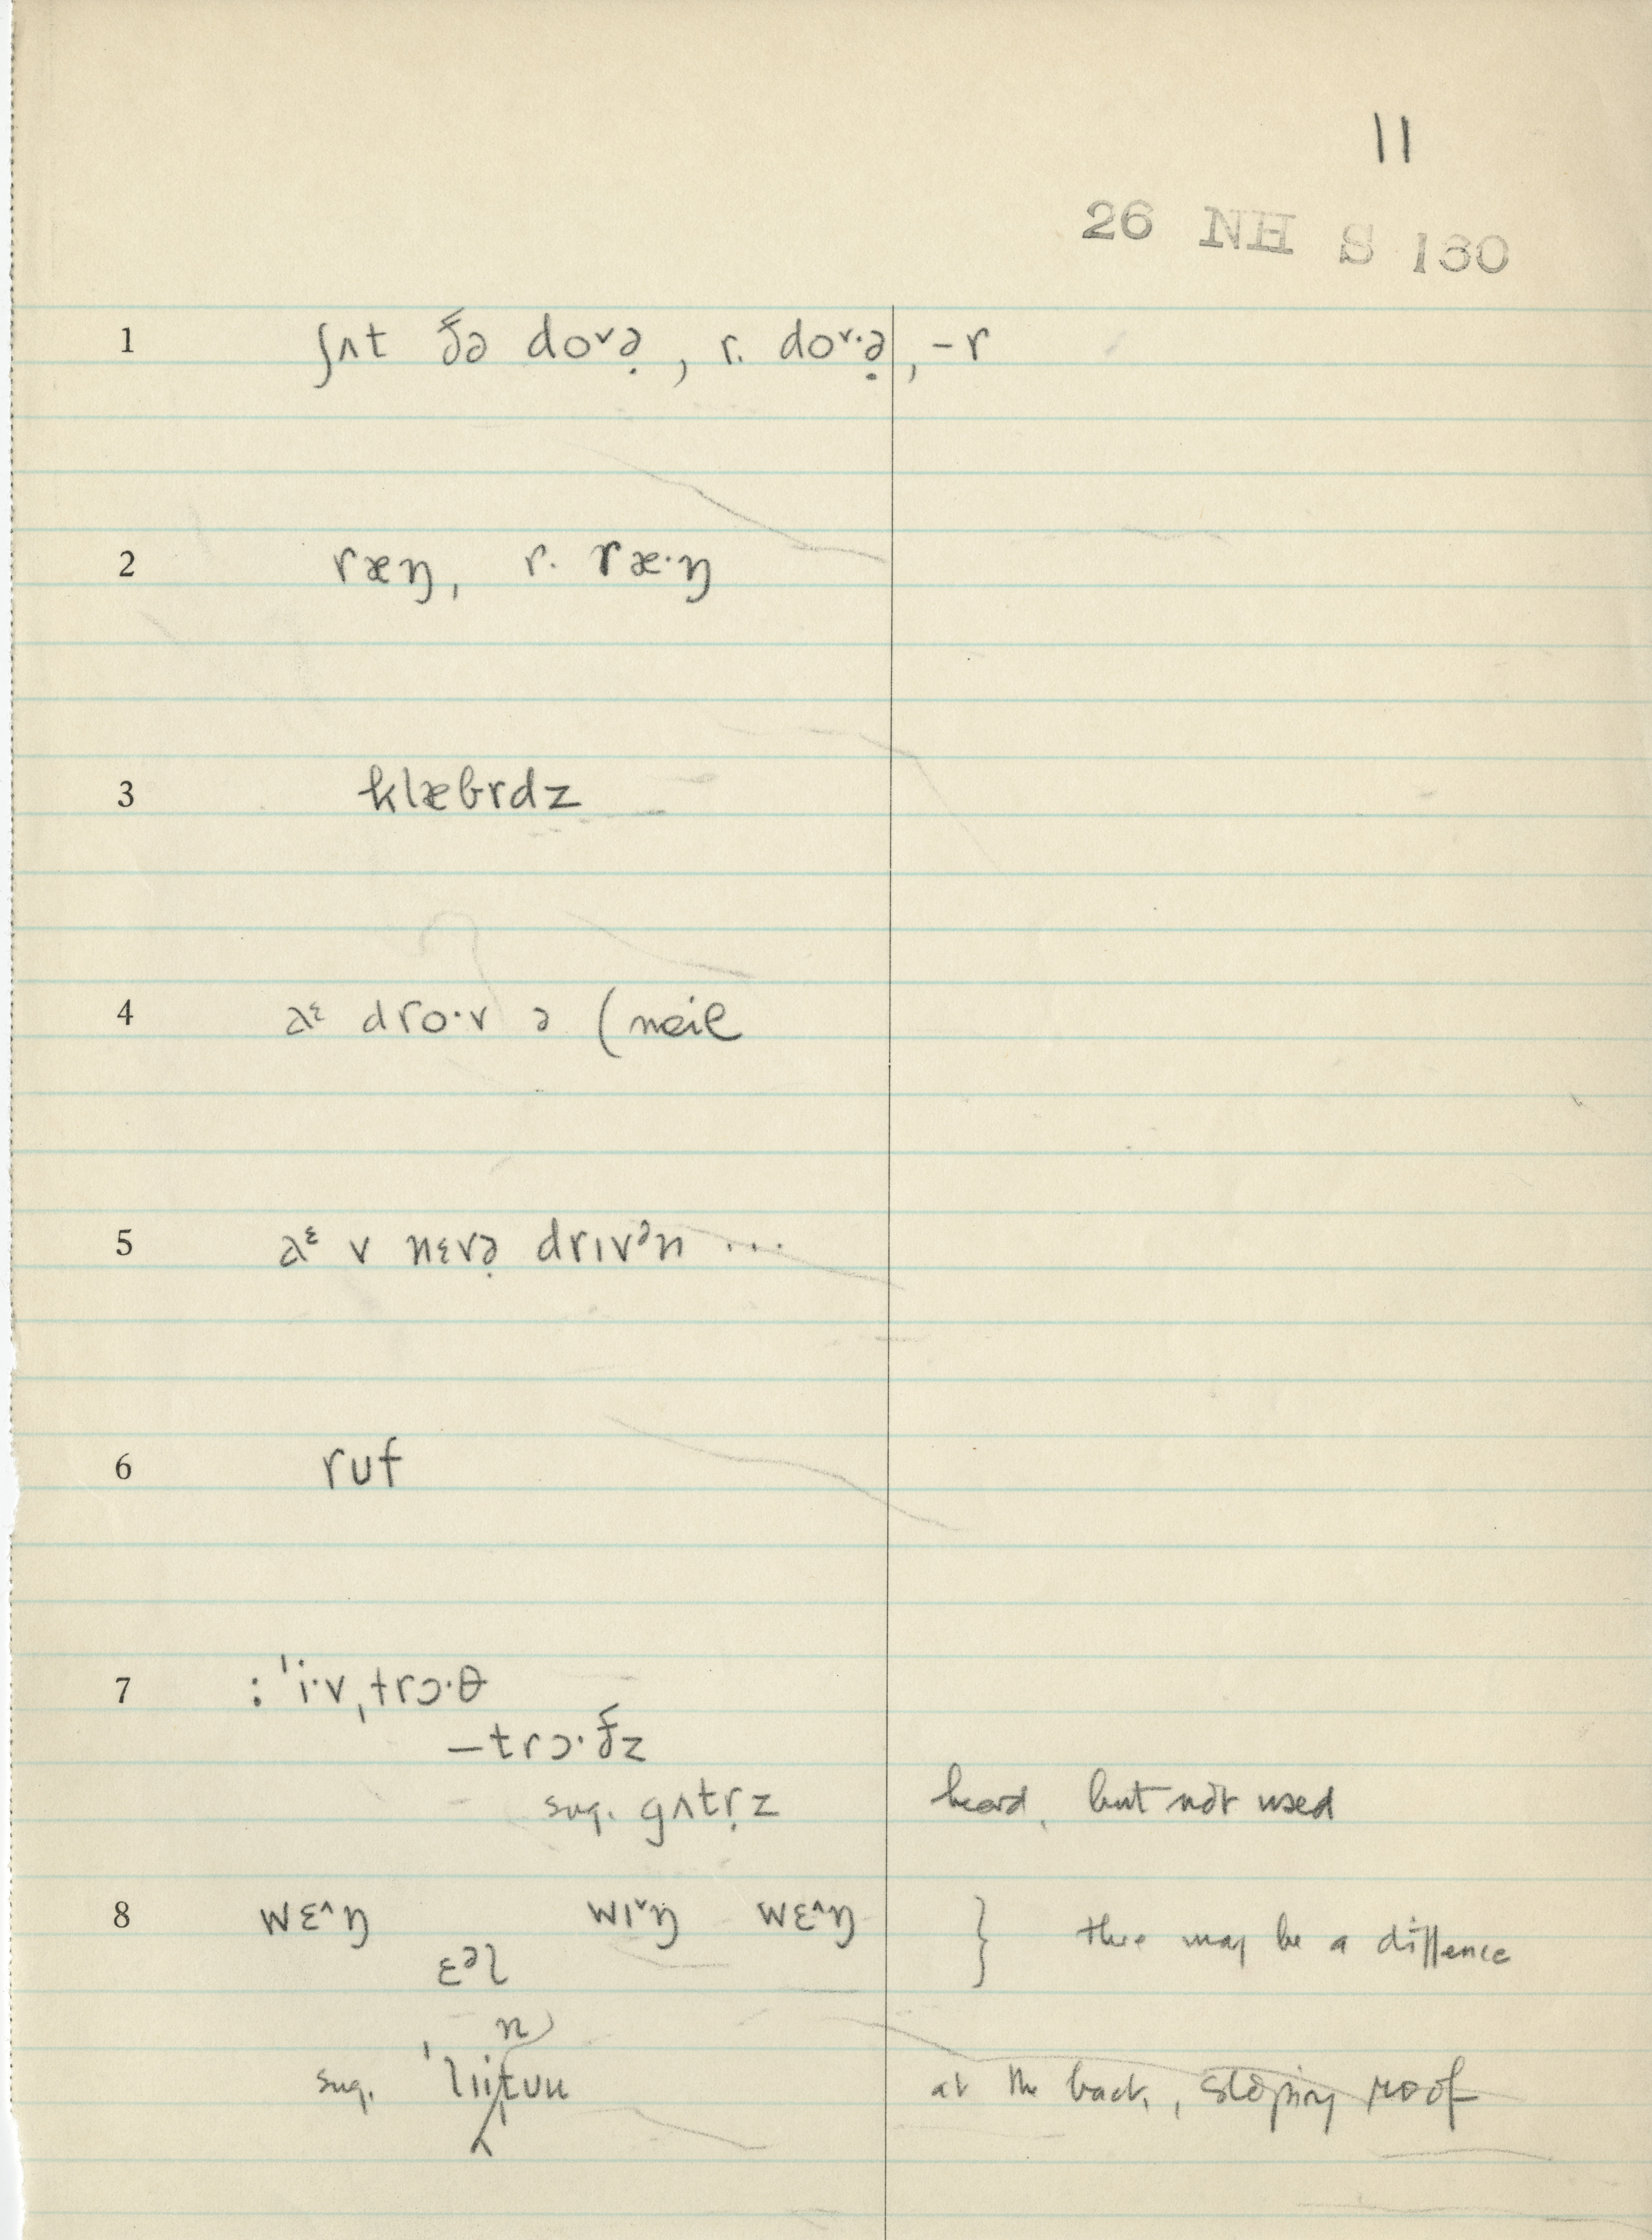 11
26 NH S 130
1 ʃʌt ðə do˅ə̣, r. do˅·ə̣, –r
2 ræŋ, r. ræ·ŋ
3 klæbrdz
4 dro·v ə (neil
5 v nɛvə̣ drɪvᵊn ...
6 ruf
7 : ˈi·vˌtrɔ·θ
–trɔ·ðz
sug. gʌtṛz heard, but not used
8 wɛ^ŋ wɪ˅ŋ wɛ^ŋ } there may be a diffence
ɛᵊl
n
sug. at the back, sloping roof